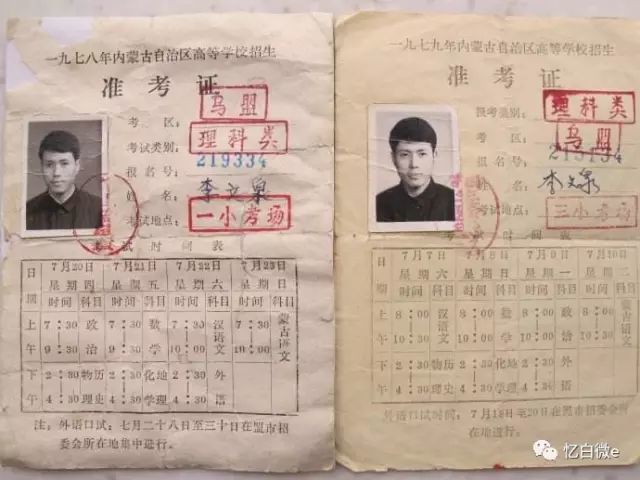 一九七八年内蒙古自治区高等学校招生
准考证
考区：乌盟
考试类别：理科类
报名号：219334
姓名：李文泉
考试地点：一小考场
考试时间表
日期 7月20日 星期四 7月21日 星期五 7月22日 星期六 7月23日 星期日
时间 科目 时间 科目 时间 科目 时间 科目
上午 7:30 9:30 政治 7:30 9:30 数学 7:30 10:00 汉语文 7:30 10:00 蒙古语文
下午 2:30 4:30 物理 历史 2:30 4:30 化学 地理 2:30 4:30 外语
注：外语口试：七月二十八日至三十日在盟市招
委会所在地集中进行。
一九七九年内蒙古自治区高等学校招生
准考证
报考类别：理科类
考区：乌盟
报名号：
姓名：李文泉
考试地点：三小考场
考试时间表
日期 7月7日 星期六 7月8日 星期日 7月9日 星期一 星期二
时间 科目 时间 科目 时间 科目 时间
上午 8:00 10:30 汉语文 8:00 10:00 数学 8:00 10:00 政治 8:00 10:30 蒙古语文
下午 2:30 4:30 物理 历史 2:30 4:30 化学 地理 2:30 4:30 外语
外语口试时间：7月18日至20日在盟市招委会所
在地进行。
忆白微e